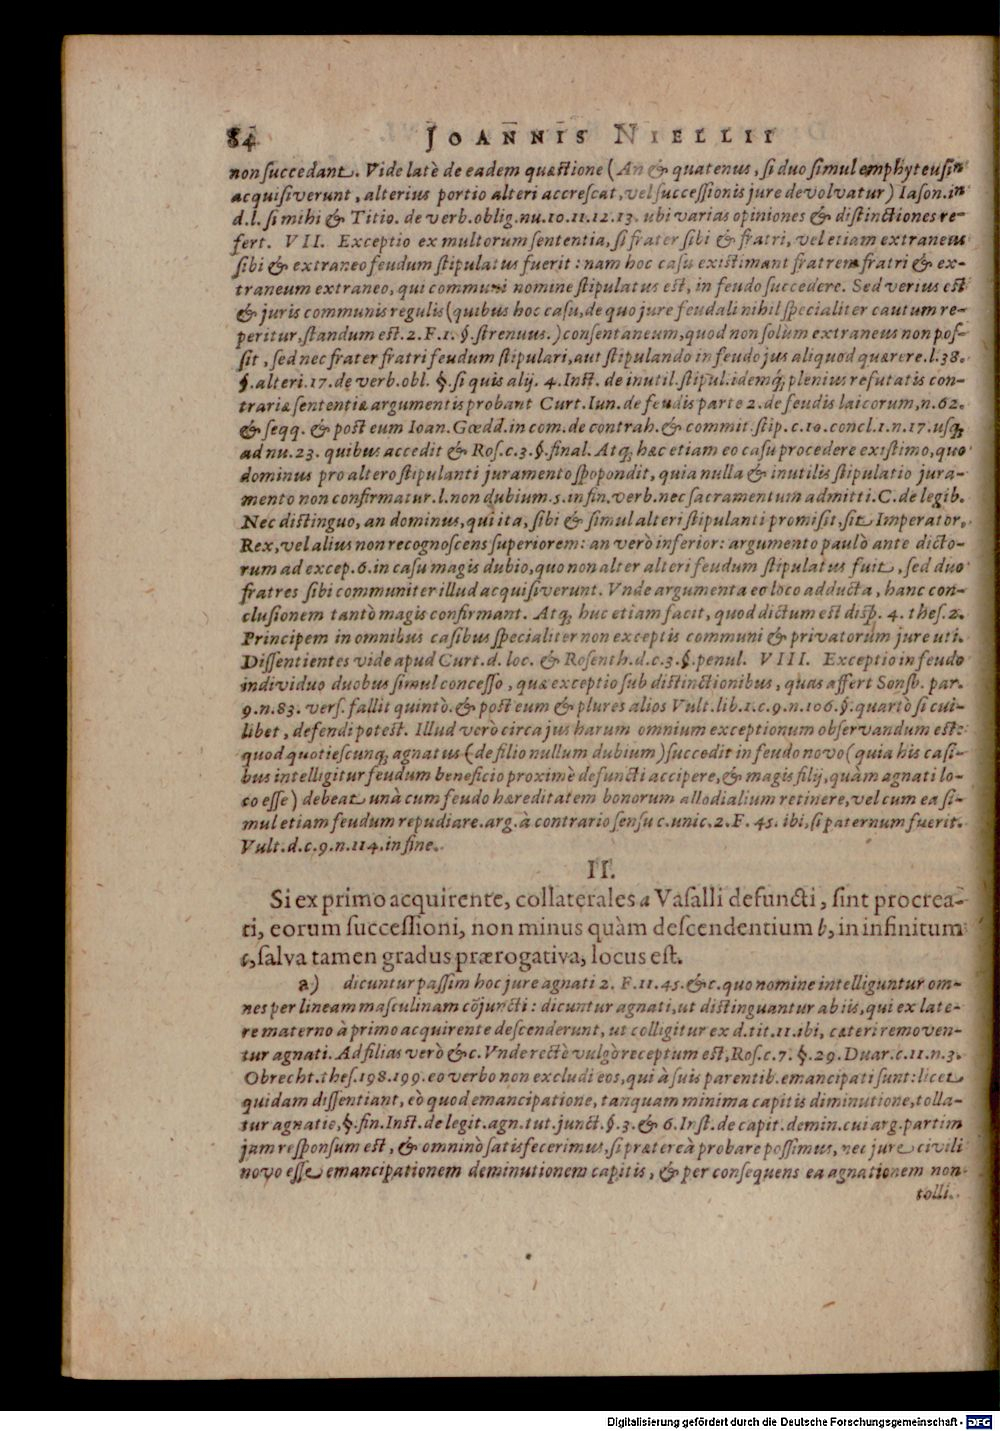 84 JOANNIS NIELLII
non succedant. Vide latè de eadem quæstione (An & quatenus, si duo simul emphyteusin
acquisiverunt, alterius portio alteri accrescat, vel successionis jure devolvatur) Iason. in
d. l. si mihi & Titio. de verb. oblig. nu. 10. 11. 12. 13. ubi varias opiniones & distinctiones re-
fert. VII. Exceptio ex multorum sententia, si frater sibi & fratri, vel etiam extraneus
sibi & extraneo feudum stipulatus fuerit: nam hoc casu existimant fratrem fratri & ex-
traneum extraneo, qui communi nomine stipulatus est, in feudo succedere. Sed verius est
& juris communis regulis (quibus hoc casu, de quo jure feudali nihil specialiter cautum re-
peritur, standum est. 2. F. 1. §. strenuus.) consentaneum, quod non solùm extraneus non pos-
sit, sed nec frater fratri feudum stipulari, aut stipulando in feudo jus aliquod quærere. l. 38.
§. alteri. 17. de verb. obl. §. si quis alij. 4. Inst. de inutil. stipul. idemq; plenius refutatis con-
trariæ sententiæ argumentis probant Curt. Iun. de feudis parte 2. de feudis laicorum, n. 62.
& seqq. & post eum Ioan. Gœdd. in com. de contrah. & commit. stip. c. 10. concl. 1. n. 17. usq;
ad nu. 23. quibus accedit & Ros. c. 3. §. final. Atq; hæc etiam eo casu procedere existimo, quo
dominus pro altero stipulanti juramento spopondit, quia nulla & inutilis stipulatio jura-
mento non confirmatur. l. non dubium. 5. in fin. verb. nec sacramentum admitti. C. de legib.
Nec distinguo, an dominus, qui ita, sibi & simul alteri stipulanti promisit, sit Imperator,
Rex, vel alius non recognoscens superiorem: an verò inferior: argumento paulò ante dicto-
rum ad excep. 6. in casu magis dubio, quo non alter alteri feudum stipulatus fuit, sed duo
fratres sibi communiter illud acquisiverunt. Vnde argumenta eo loco adducta, hanc con-
clusionem tantò magis confirmant. Atq; huc etiam facit, quod dictum est disp. 4. thes. 2.
Principem in omnibus casibus specialiter non exceptis communi & privatorum jure uti.
Dissentientes vide apud Curt. d. loc. & Rosenth. d. c. 3. §. penul. VIII. Exceptio in feudo
individuo duobus simul concesso, quæ exceptio sub distinctionibus, quas affert Sonsb. par.
9. n. 83. vers. fallit quintò. & post eum & plures alios Vult. lib. 1. c. 9. n. 106. §. quartò si cui-
libet, defendi potest. Illud verò circa jus harum omnium exceptionum observandum est:
quod quotiescunq; agnatus (de filio nullum dubium) succedit in feudo novo (quia his casi-
bus intelligitur feudum beneficio proximè defuncti accipere, & magis filij, quàm agnati lo-
co esse) debeat unà cum feudo hæreditatem bonorum allodialium retinere, vel cum ea si-
mul etiam feudum repudiare. arg. à contrario sensu c. unic. 2. F. 45. ibi, si paternum fuerit.
Vult. d. c. 9. n. 114. in fine.
II.
Si ex primo acquirente, collaterales a Vasalli defuncti, sint procrea-
ti, eorum successioni, non minus quàm descendentium b, in infinitum
c, salva tamen gradus prærogativa, locus est.
a) dicuntur passim hoc jure agnati 2. F. 11. 45. &c. quo nomine intelliguntur om-
nes per lineam masculinam cõjuncti: dicuntur agnati, ut distinguantur ab iis, qui ex late-
re materno à primo acquirente descenderunt, ut colligitur ex d. tit. 11. ibi, cæteri removen-
tur agnati. Ad filias verò &c. Vnde rectè vulgò receptum est, Ros. c. 7. §. 29. Duar. c. 11. n. 3.
Obrecht. thes. 198. 199. eo verbo non excludi eos, qui à suis parentib. emancipati sunt: licet
quidam dissentiant, eò quod emancipatione, tanquam minima capitis diminutione, tolla-
tur agnatio, §. fin. Inst. de legit. agn. tut. junct. §. 3. & 6. Inst. de capit. demin. cui arg. partim
jam responsum est, & omninò satisfecerimus, si præterèà probare possimus, nec jure civili
novo esse emancipationem deminutionem capitis, & per consequens ea agnationem non
tolli.
Digitalisierung gefördert durch die Deutsche Forschungsgemeinschaft - DFG